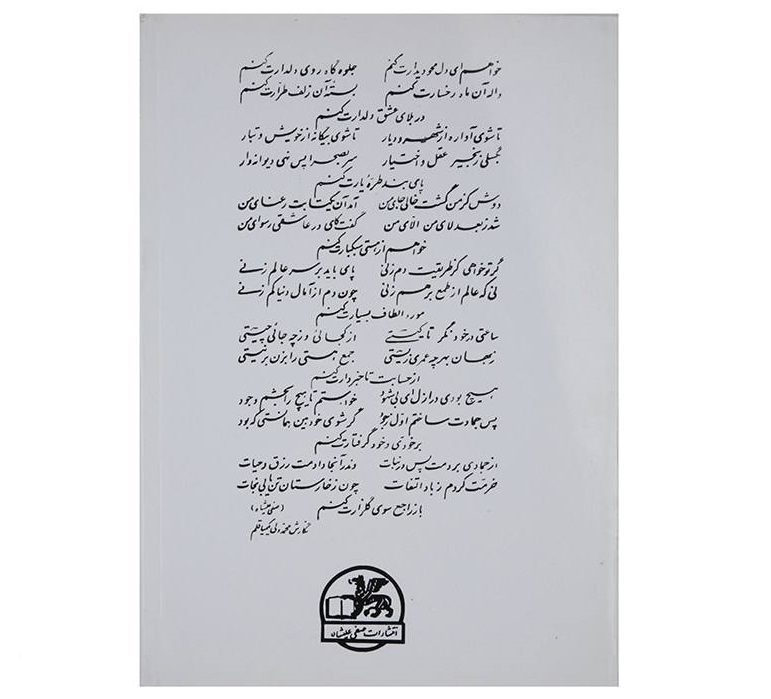 خواهم ای دل محو دیدارت کنم جلوه گاه روی دلدارت کنم
واله آن ماه رخسارت کنم بستهٔ آن زلف طرارت کنم
در بلای عشق دلدارت کنم
تا شوی آواره از شهر و دیار تا شوی بیگانه از خویش و تبار
بگسلی زنجیر عقل و اختیار سر بصحرا پس نهی دیوانه وار
پای بند طرهٔ یارت کنم
دوش کز من گشت خالی جای من آمد آن یکتا بت رعنای من
شد ز بعد لای من الای من گفت کای در عاشقی رسوای من
خواهم از هستی سبکبارت کنم
گر تو خواهی کز طریقت دم زنی پای باید بر سر عالم زنی
نی که عالم از طمع بر هم زنی چون دم از آمال دنیا کم زنی
مورد الطاف بسیارت کنم
ساعتی در خود نگر تا کیستی از کجائی وز چه جائی چیستی
در جهان بهر چه عمری زیستی جمع هستی را بزن بر نیستی
از حسابت تا خبردارت کنم
هیچ بودی در ازل ای بی شهود خواستم تا هیچ را بخشم وجود
پس جمادت ساختم اول ز جود گر شوی خودبین همانستی که بود
بر خودی خود گرفتارت کنم
از جمادی بردمت پس در نبات وندر آنجا دادمت رزق و حیات
خرمت کردم ز باد التفات چون ز خارستان تن یابی نجات
باز راجع سوی گلزارت کنم
(صفی علیشاه)
نگارش محمد ولی کیمیاقلم
انتشارات صفی علیشاه